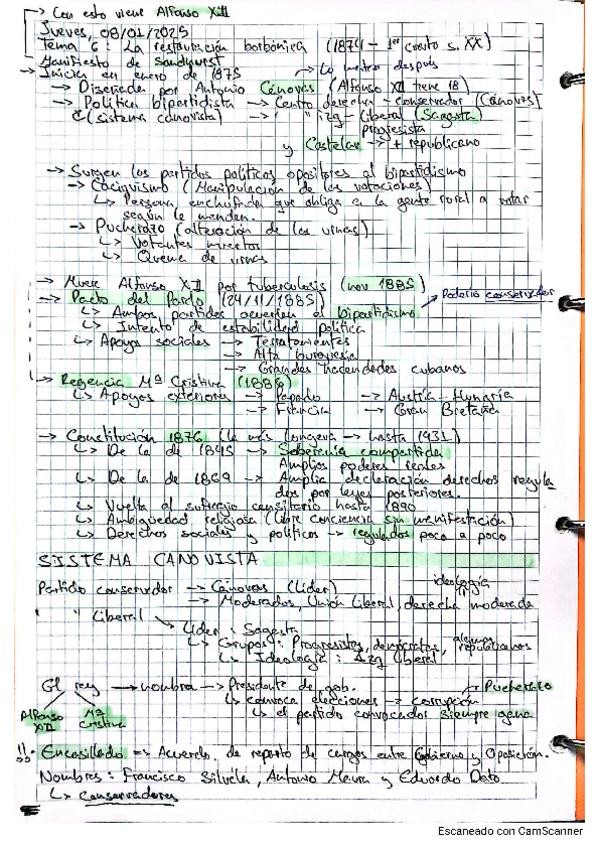 → Con esto viene Alfonso XII
Jueves, 08/01/2025
Tema 6: La restauración borbónica (1874 - 1er cuarto s. XX)
Manifiesto de Sandhurst
→ Inicia en enero de 1875 → Lo matan después
→ Diseñada por Antonio Cánovas (Alfonso XII tiene 18)
→ Política bipartidista → Centro derecha - conservador (Cánovas)
(sistema canovista) → " izq - Liberal (Sagasta)
progresista
y Castelar → + republicano
→ Surgen los partidos políticos opositores al bipartidismo
→ Caciquismo (Manipulación de las votaciones)
↳ Persona enchufada que obliga a la gente rural a votar
según le manden.
→ Pucherazo (alteración de las urnas)
↳ Votantes muertos
↳ Quema de urnas
→ Muere Alfonso XII por tuberculosis (nov 1885)
→ Pacto del Pardo (24/11/1885) Poderío conservador
↳ Ambos partidos acuerdan el bipartidismo
↳ Intento de estabilidad política
↳ Apoyos sociales → Terratenientes
→ Alta burguesía
→ Grandes hacendados cubanos
↳ Regencia Mª Cristina (1886)
↳ Apoyos exteriores → Papado → Austria-Hungría
→ Francia → Gran Bretaña
→ Constitución 1876 (la más longeva → hasta 1931)
↳ De la de 1845 → Soberanía compartida
Amplios poderes reales
↳ De la de 1869 → Amplia declaración derechos regula
dos por leyes posteriores.
↳ Vuelta al sufragio censitario hasta 1890
↳ Ambigüedad religiosa (libre conciencia sin manifestación)
↳ Derechos sociales y políticos → regulados poco a poco
SISTEMA CANOVISTA
ideología
Partido conservador → Cánovas (Líder)
→ Moderados, Unión Liberal, derecha moderada
" " Liberal → Líder: Sagasta
↳ Grupos: Progresistas, demócratas, algunos republicanos
↳ Ideología: Izq liberal
El rey → nombra → Presidente de gob. → Pucherazo
↳ convoca elecciones → corrupción
Alfonso XII Mª Cristina ↳ el partido convocador siempre gana
!! Encasillado => Acuerdo de reparto de cargos entre Gobierno y Oposición.
Nombres: Francisco Silvela, Antonio Maura y Eduardo Dato
↳ Conservadores
Escaneado con CamScanner